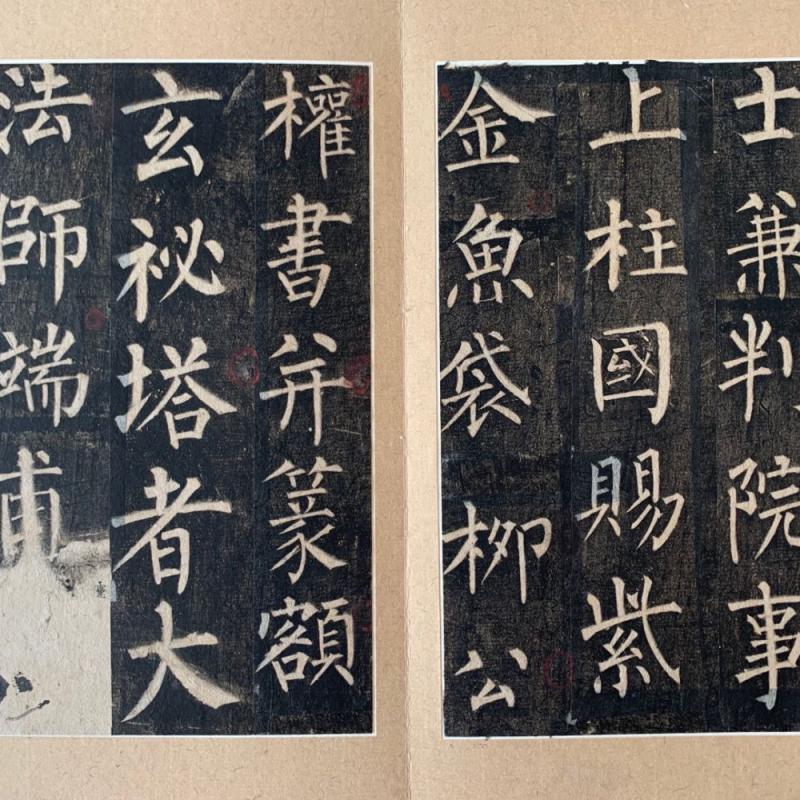 士兼判院事
上柱國賜紫
金魚袋柳公
權書并篆額
玄祕塔者大
法師端甫